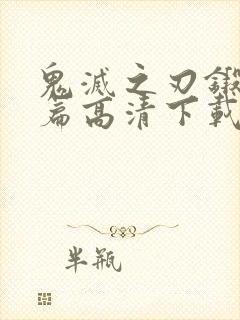 鬼滅之刃鍛
篇高清下載
半瓶